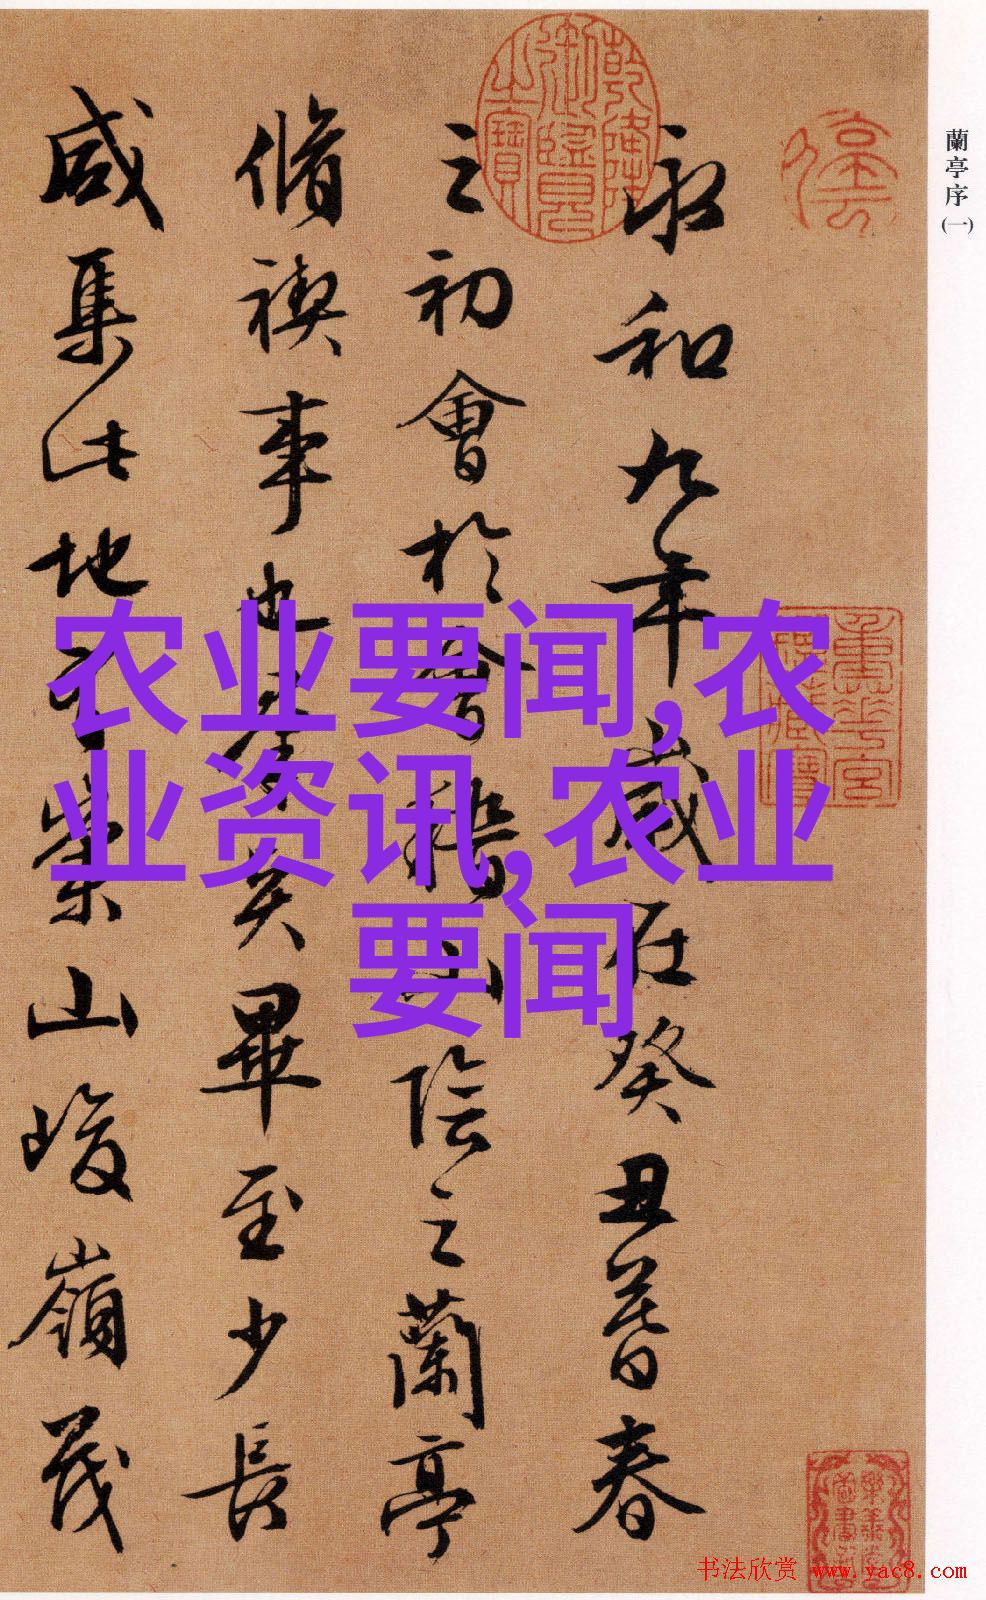 蘭亭序(一)
永和九年歲在癸丑暮春
之初會於會稽山陰之蘭亭
脩禊事也羣賢畢至少長
咸集此地有崇山峻嶺茂
乾隆御覽之寶
农业要闻,农
业资讯,农业
要闻
书法欣赏 www.yac8.com